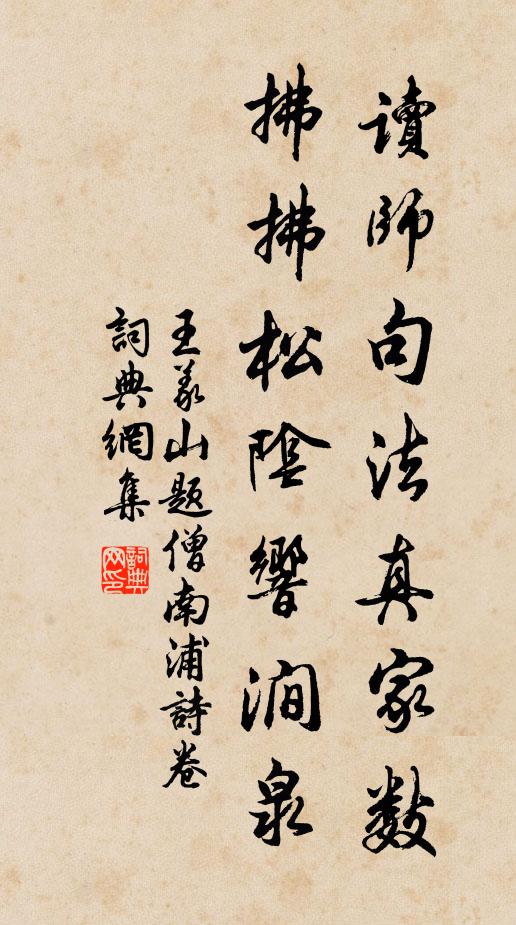 讀師句法真家數
拂拂松陰響澗泉
王義山題僧南浦詩卷
詞典網集
詞典網印